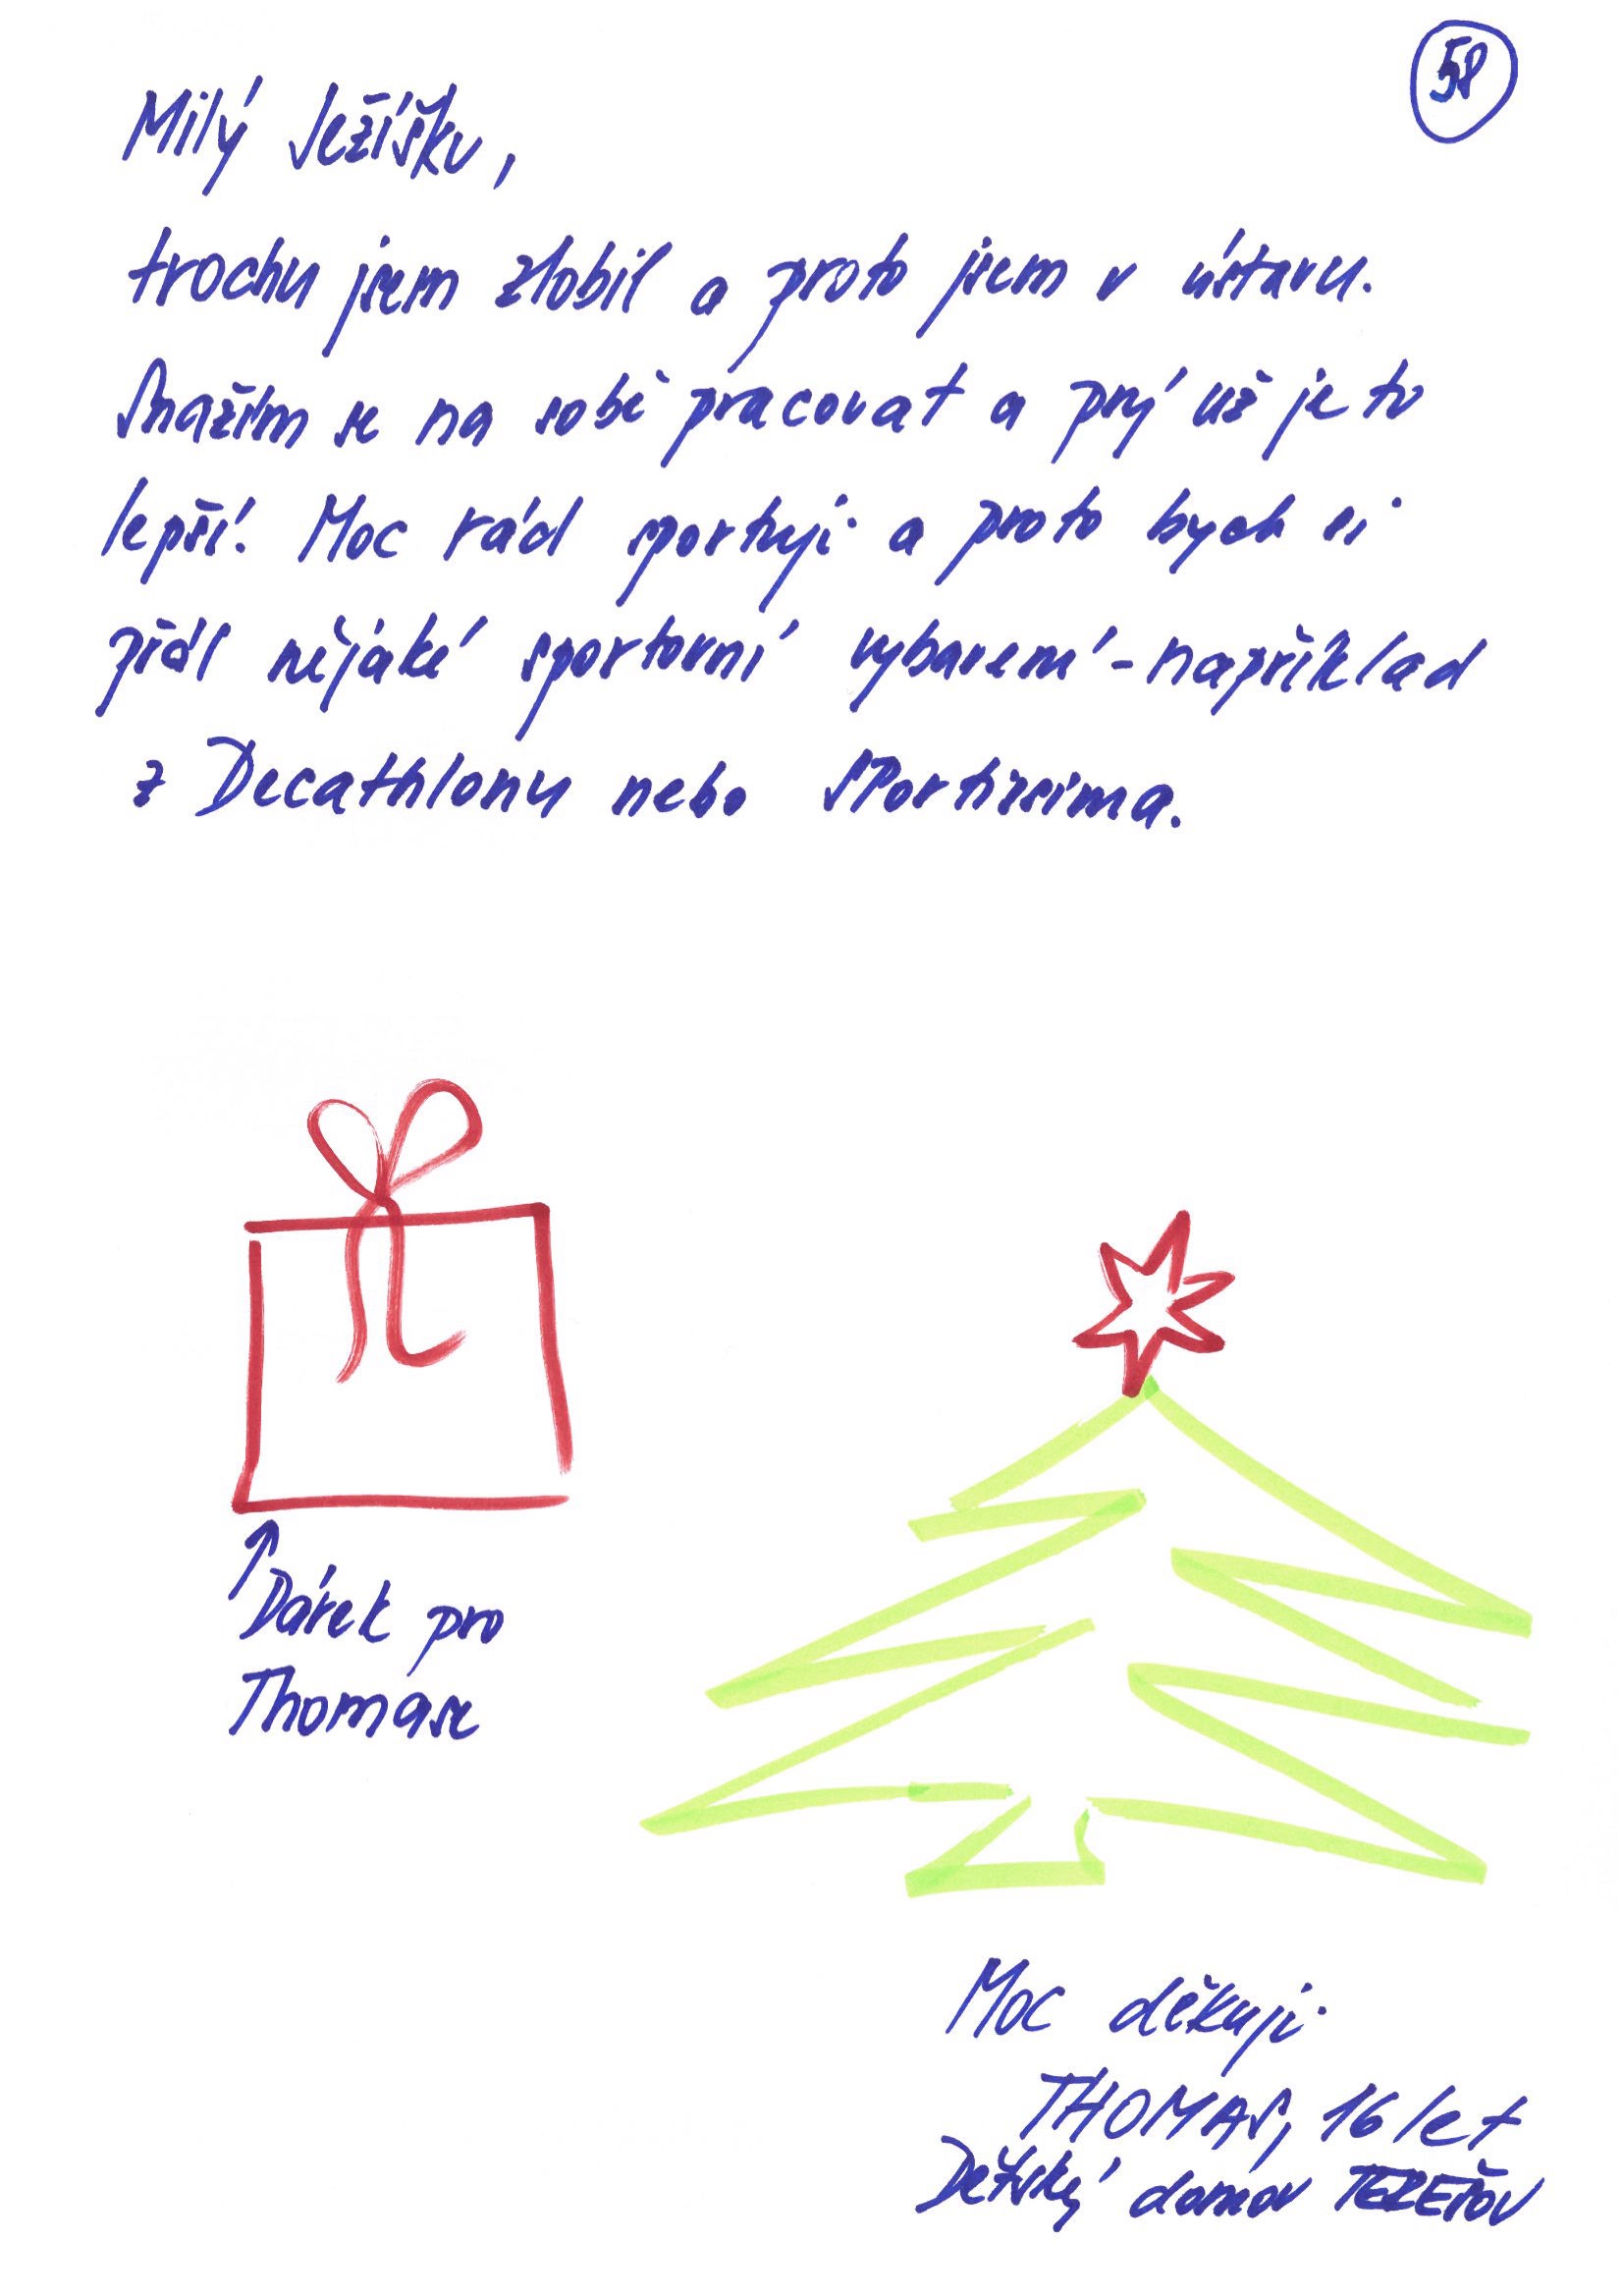 58
Milý Ježíšku,
trochu jsem zlobil a proto jsem v ústavu.
Snažím se na sobě pracovat a prý už je to
lepší. Moc rád sportuji a proto bych si
přál nějaké sportovní vybavení - například
z Decathlonu nebo SPortissima.
Dárek pro
Thomase
Moc děkuji
THOMAS, 16 let
Dětský domov TEREŠOV